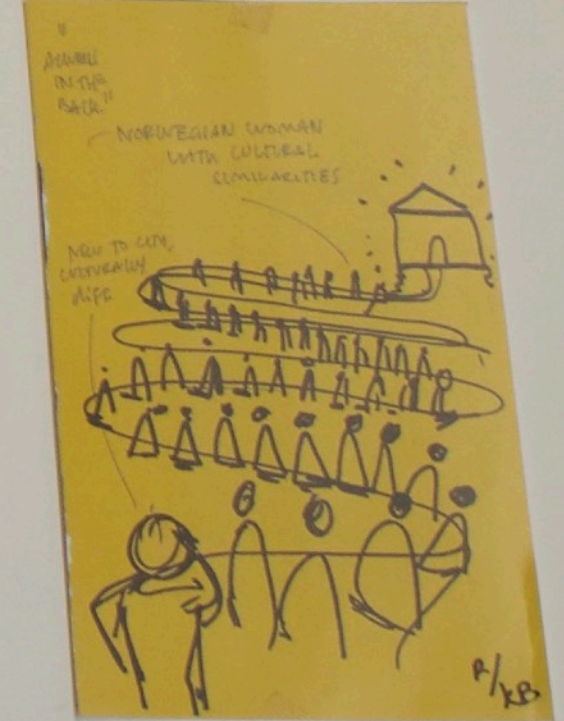 "
ALWAYS
IN THE
BACK"
NORWEGIAN WOMAN
WITH CULTURAL
SIMILARITIES
NEW TO CITY,
CULTURALLY
DIFF
R/KB